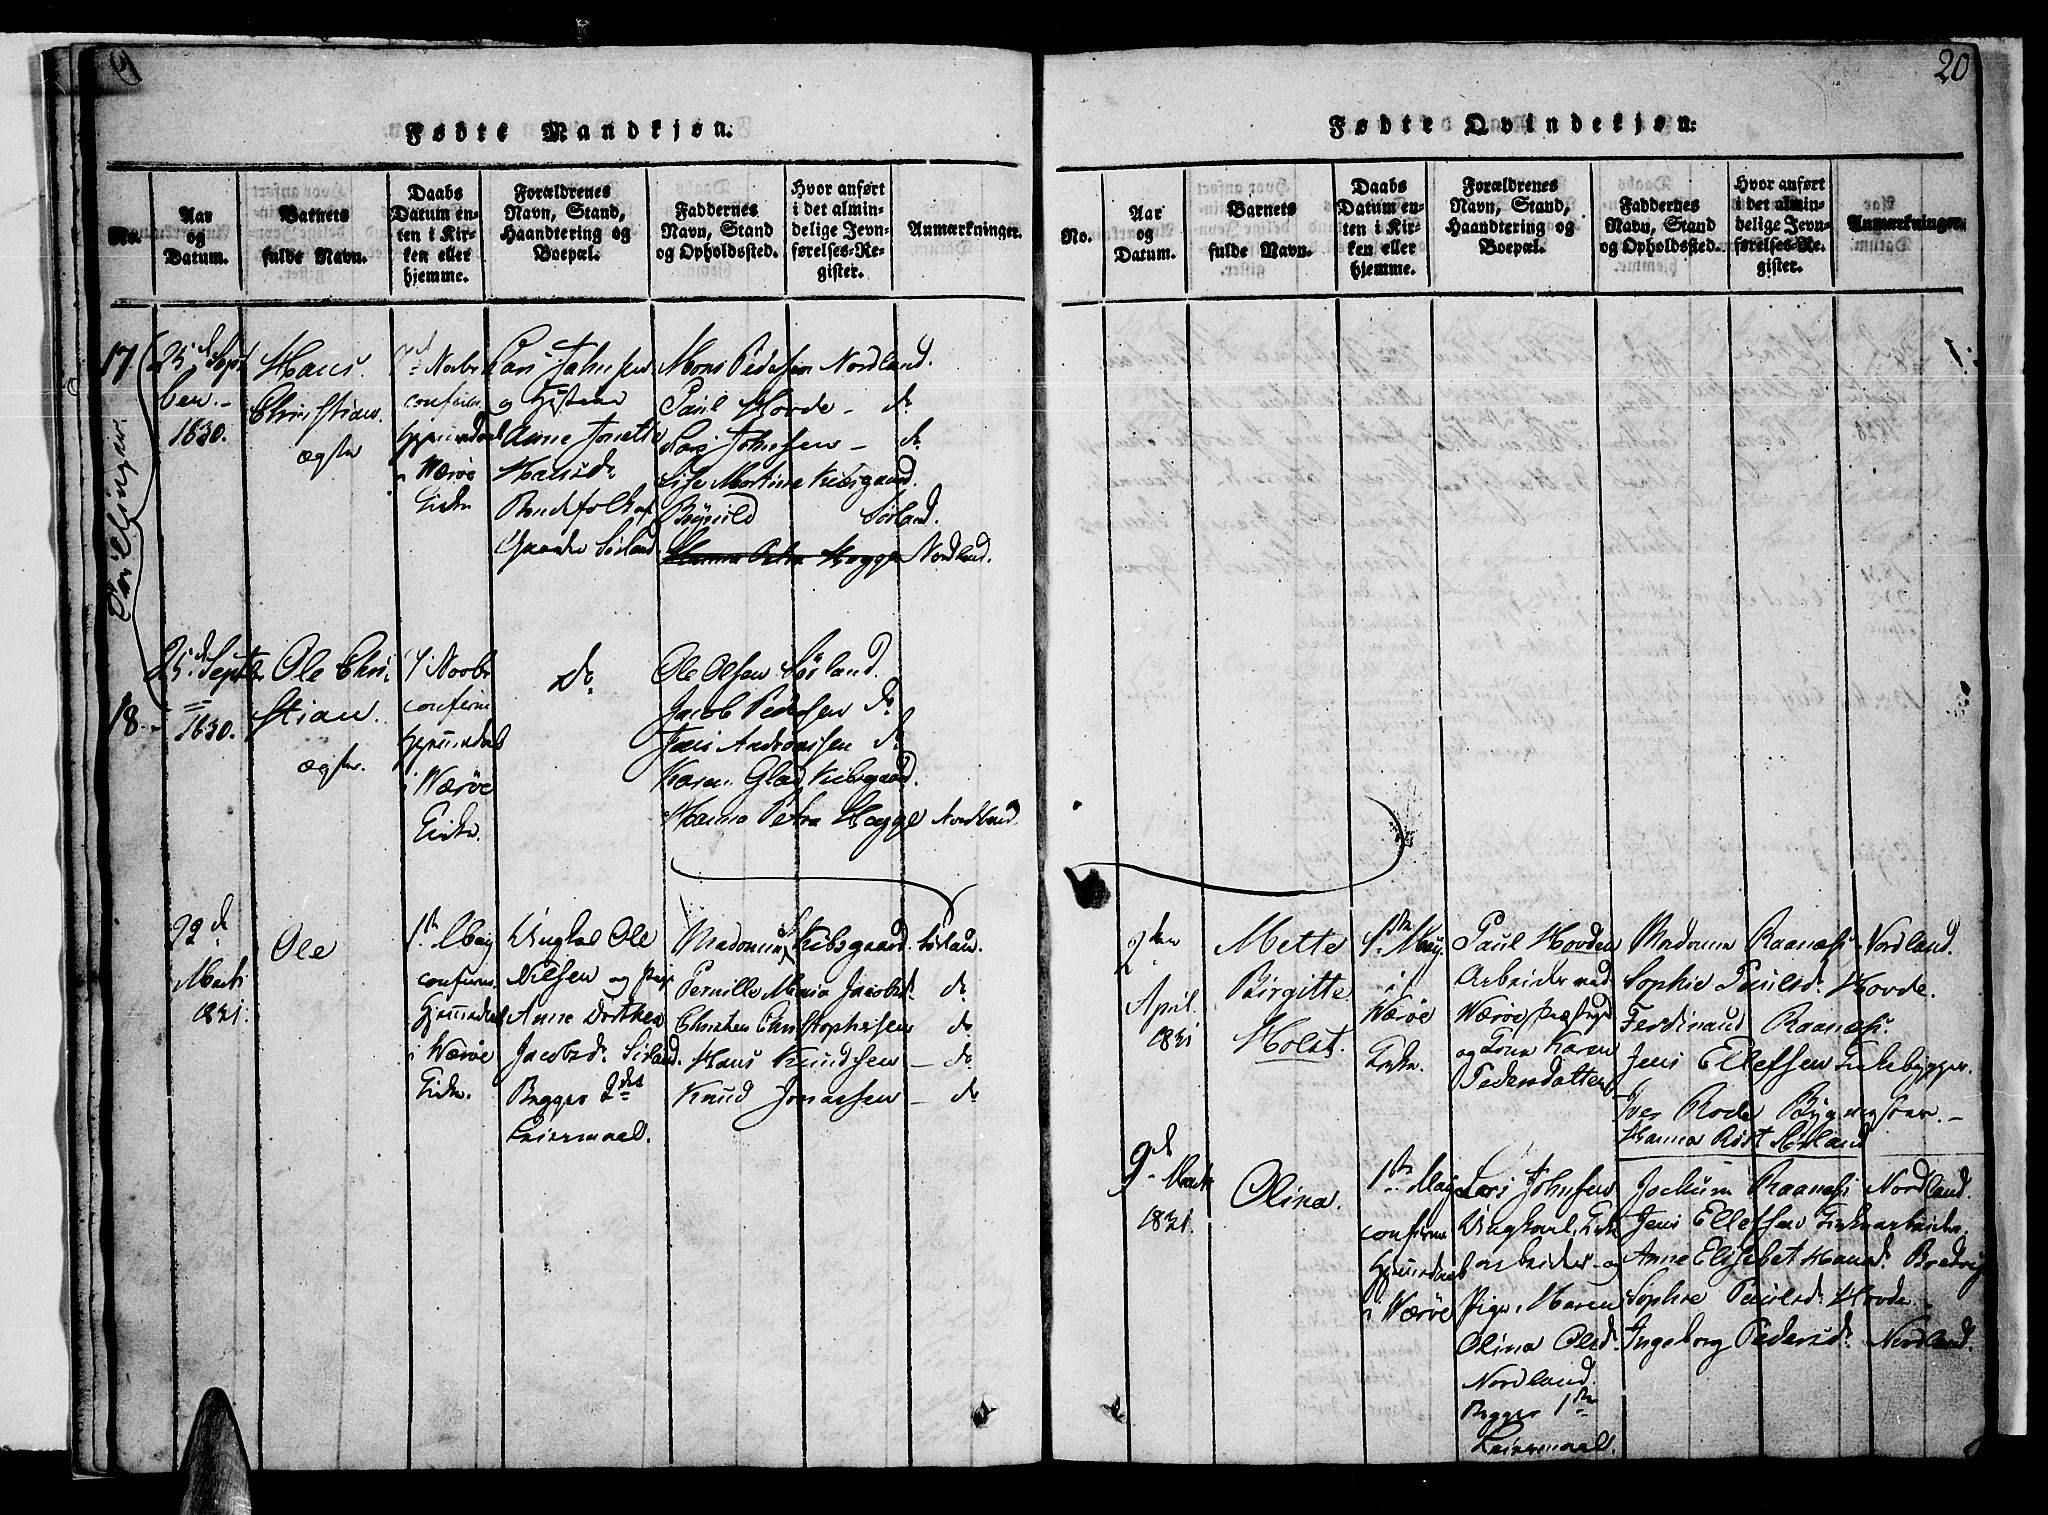 20
Fødte Mandkjøn.
No.
Aar og Datum.
Barnets fulde Navn.
Daabs Datum enten i Kirken eller hjemme.
Forældrenes Navn, Stand, Haandtering og Boepæl.
Faddernes Navn, Stand og Opholdssted.
Hvor anført i det almindelige Jevnførelses-Register.
Anmarkninger.
17
25d Sept
1830.
Hans
Christian
ægte
confirm
Hjemmedaab
i Værøe
Kirke
Lars Johnsen
og Hustrue
Anne Jonette
Hansd.
Sørland
Mons Pedersen Nordland.
Paul Hovde - do
Lars Johnsen - do
Martine Kibsgaard.
Sørland.
Hanna Petra Hegge Nordland.
Tvillinger
18
25d Septbr
1830.
Ole Chri-
stian
ægte.
confirm
Hjemmedaab
i Værøe
Kirke.
Do.
Ole Olsen Sørland.
Jacob Pedersen do
Andreassen do
Karen Glad, Kibsgaard.
Hanna Petra Hegge Nordland.
22d
Marti
1831.
Ole
1te May
confirm.
Hjemmedaab
i Værøe
Kirke.
Ungkal Ole
Nilsen og Pige
Anne Dorthea
Jacobsd. Sørland.
Begges 2det
Leiermaal.
Kibsgaard. Sørlan.
Pernille Maria Jacobsd. do
Christen Christophersen do
Hans Knudsen - do
Knud Jonassen - do
Fødte Qvindekjøn:
No.
Aar og Datum.
Barnets fulde Navn.
Daabs Datum enten i Kirken eller hjemme.
Forældrenes Navn, Stand, Haandtering og Boepæl.
Faddernes Navn, Stand og Opholdssted.
Hvor anført i det almindelige Jevnførelses-Register.
Anmarkninger.
2den
April
1831
Mette
Birgitte
Holst.
1te May.
i
Værøe
Kirke
Paul Hovden
Arbeider ved
Værøe
og Kone Karen
Pedersdatter
Madame Raanæs Nordland.
Sophie Paulsd. Hovde.
Ferdinand Raanæs.
Jens Ellefsen Kirkebygger.
Iver Rode Bygmester. -
Hanna Röst Nordland
9d Marti
1831.
Olina.
1te May
confirm
Hjemmedaab
i Værøe
Lars Johnsen
Ungkarl, Kirke
arbeider og
Pige, Maren
Olina Olsd.
Nordland.
Begges 1te
Leiermaal.
Jochum Raanæs Nordland.
Jens Ellefsen Kirkearbeider.
Anne Elisebet Hansd.
Sophie Paulsd. Hovde.
Ingeborg Pedersd. Nordland.